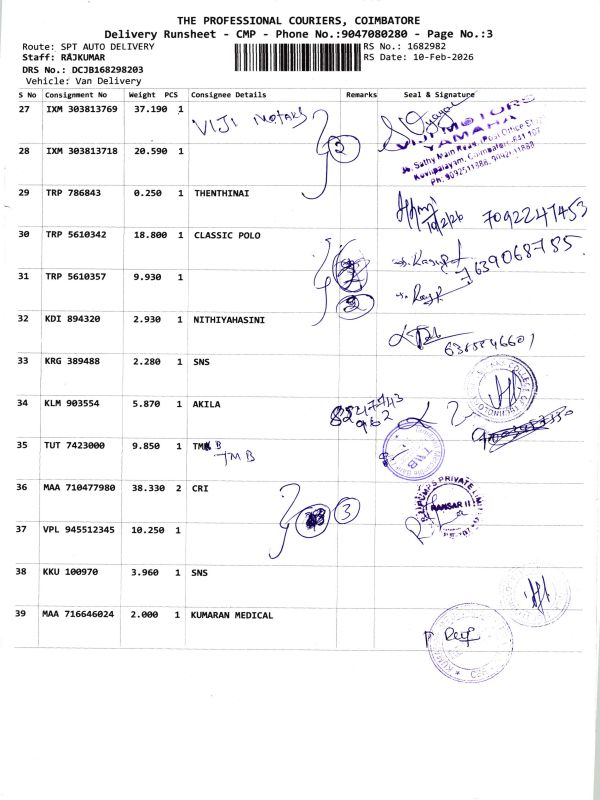 THE PROFESSIONAL COURIERS, COIMBATORE
Delivery Runsheet - CMP - Phone No.:9047080280 - Page No.:3
Route: SPT AUTO DELIVERY
RS No.: 1682982
Staff: RAJKUMAR
RS Date: 10-Feb-2026
DRS No.: DCJB168298203
Vehicle: Van Delivery
S No Consignment No Weight PCS Consignee Details Remarks Seal & Signature
27 IXM 303813769 37.190 1 VIJI MOTARS
VIJI MOTORS
YAMAHA
28 IXM 303813718 20.590 1 2
Sathy Main Road, (Post Office
Kovilpalayam, Coimbatore-641 107
Ph: 9092511888,
29 TRP 786843 0.250 1 THENTHINAI
10/2/26 7092247453
30 TRP 5610342 18.800 1 CLASSIC POLO
7639068785
31 TRP 5610357 9.930 1
2
32 KDI 894320 2.930 1 NITHIYAHASINI
33 KRG 389488 2.280 1 SNS
34 KLM 903554 5.870 1 AKILA
35 TUT 7423000 9.850 1 TMB
TMB
TMB
36 MAA 710477980 38.330 2 CRI 3
PUMPS PRIVATE LIMI
37 VPL 945512345 10.250 1
38 KKU 100970 3.960 1 SNS
39 MAA 716646024 2.000 1 KUMARAN MEDICAL